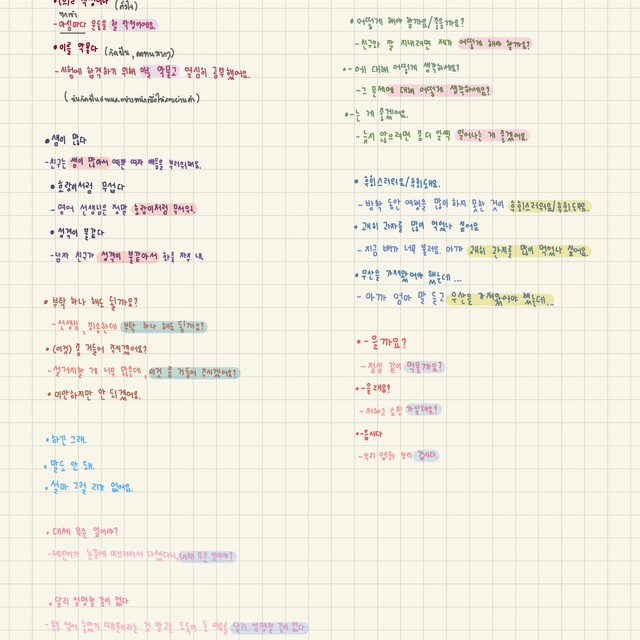 -아침마다 운동을 할 작정이에요.
•이를 악물다 (กัดฟัน, อดทนมาก)
-시험에 합격하기 위해 이를 악물고 열심히 공부했어요.
•샘이 많다
-친구는 샘이 많아서 예쁜 여자 배우를 부러워해요.
•호랑이처럼 무섭다
-영어 선생님은 정말 호랑이처럼 무서워.
•성격이 불같다
-남자 친구가 성격이 불같아서 화를 자주 내.
•부탁 하나 해도 될까요?
-선생님, 죄송한데 부탁 하나 해도 될까요?
•(이것) 좀 거들어 주시겠어요?
-설거지할 게 너무 많은데, 이것 좀 거들어 주시겠어요?
•미안하지만 안 되겠어요.
•하긴 그래.
•말도 안 돼.
•설마 그럴 리가 없어요.
•대체 무슨 일이야?
대체 무슨 일이야?
•달리 설명할 길이 없다
달리 설명할 길이 없다.
•어떻게 해야 할까요/좋을까요?
-친구와 잘 지내려면 제가 어떻게 해야 할까요?
-에 대해 어떻게 생각하세요?
-그 문제에 대해 어떻게 생각하세요?
•-는 게 좋겠어요.
-늦지 않으려면 좀 더 일찍 일어나는 게 좋겠어요.
•후회스러워요/후회돼요.
-방학 동안 여행을 많이 하지 못한 것이 후회스러워요/후회돼요.
•괜히 과자를 많이 먹었나 싶어요
-지금 배가 너무 불러요. 아까 괜히 과자를 많이 먹었나 싶어요.
•우산을 가져왔어야 했는데...
-아까 엄마 말 듣고 우산을 가져왔어야 했는데...
•-을까요?
-점심 같이 먹을까요?
•-을래요?
-저하고 쇼핑 가실래요?
•-읍시다
-우리 영화 보러 갑시다.